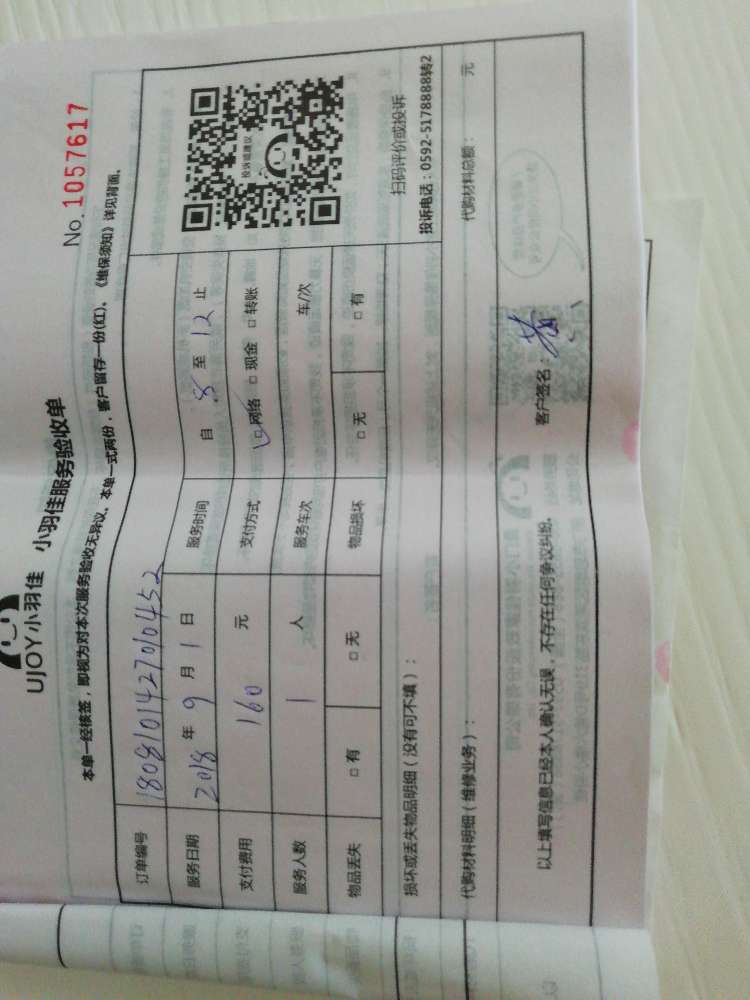 UJOY小羽佳 小羽佳服务验收单
No. 1057617
本单一经核签，即视为对本次服务验收无异议。本单一式两份，客户留存一份(红)、《维保须知》详见背面。
订单编号 180810142700452
服务日期 2018 年 9 月 1 日 服务时间 自 8 至 12 止
支付费用 160 元 支付方式 ☑网络 □现金 □转账
服务人数 1 人 服务车次 车/次
物品丢失 □有 □无 物品损坏 □无 □有
投诉或建议
扫码评价或投诉
投诉电话：0592-5178888转2
损坏或丢失物品明细（没有可不填）：
代购材料明细（维修业务）： 代购材料总额： 元
以上填写信息已经本人确认无误，不存在任何争议纠纷。 客户签名：